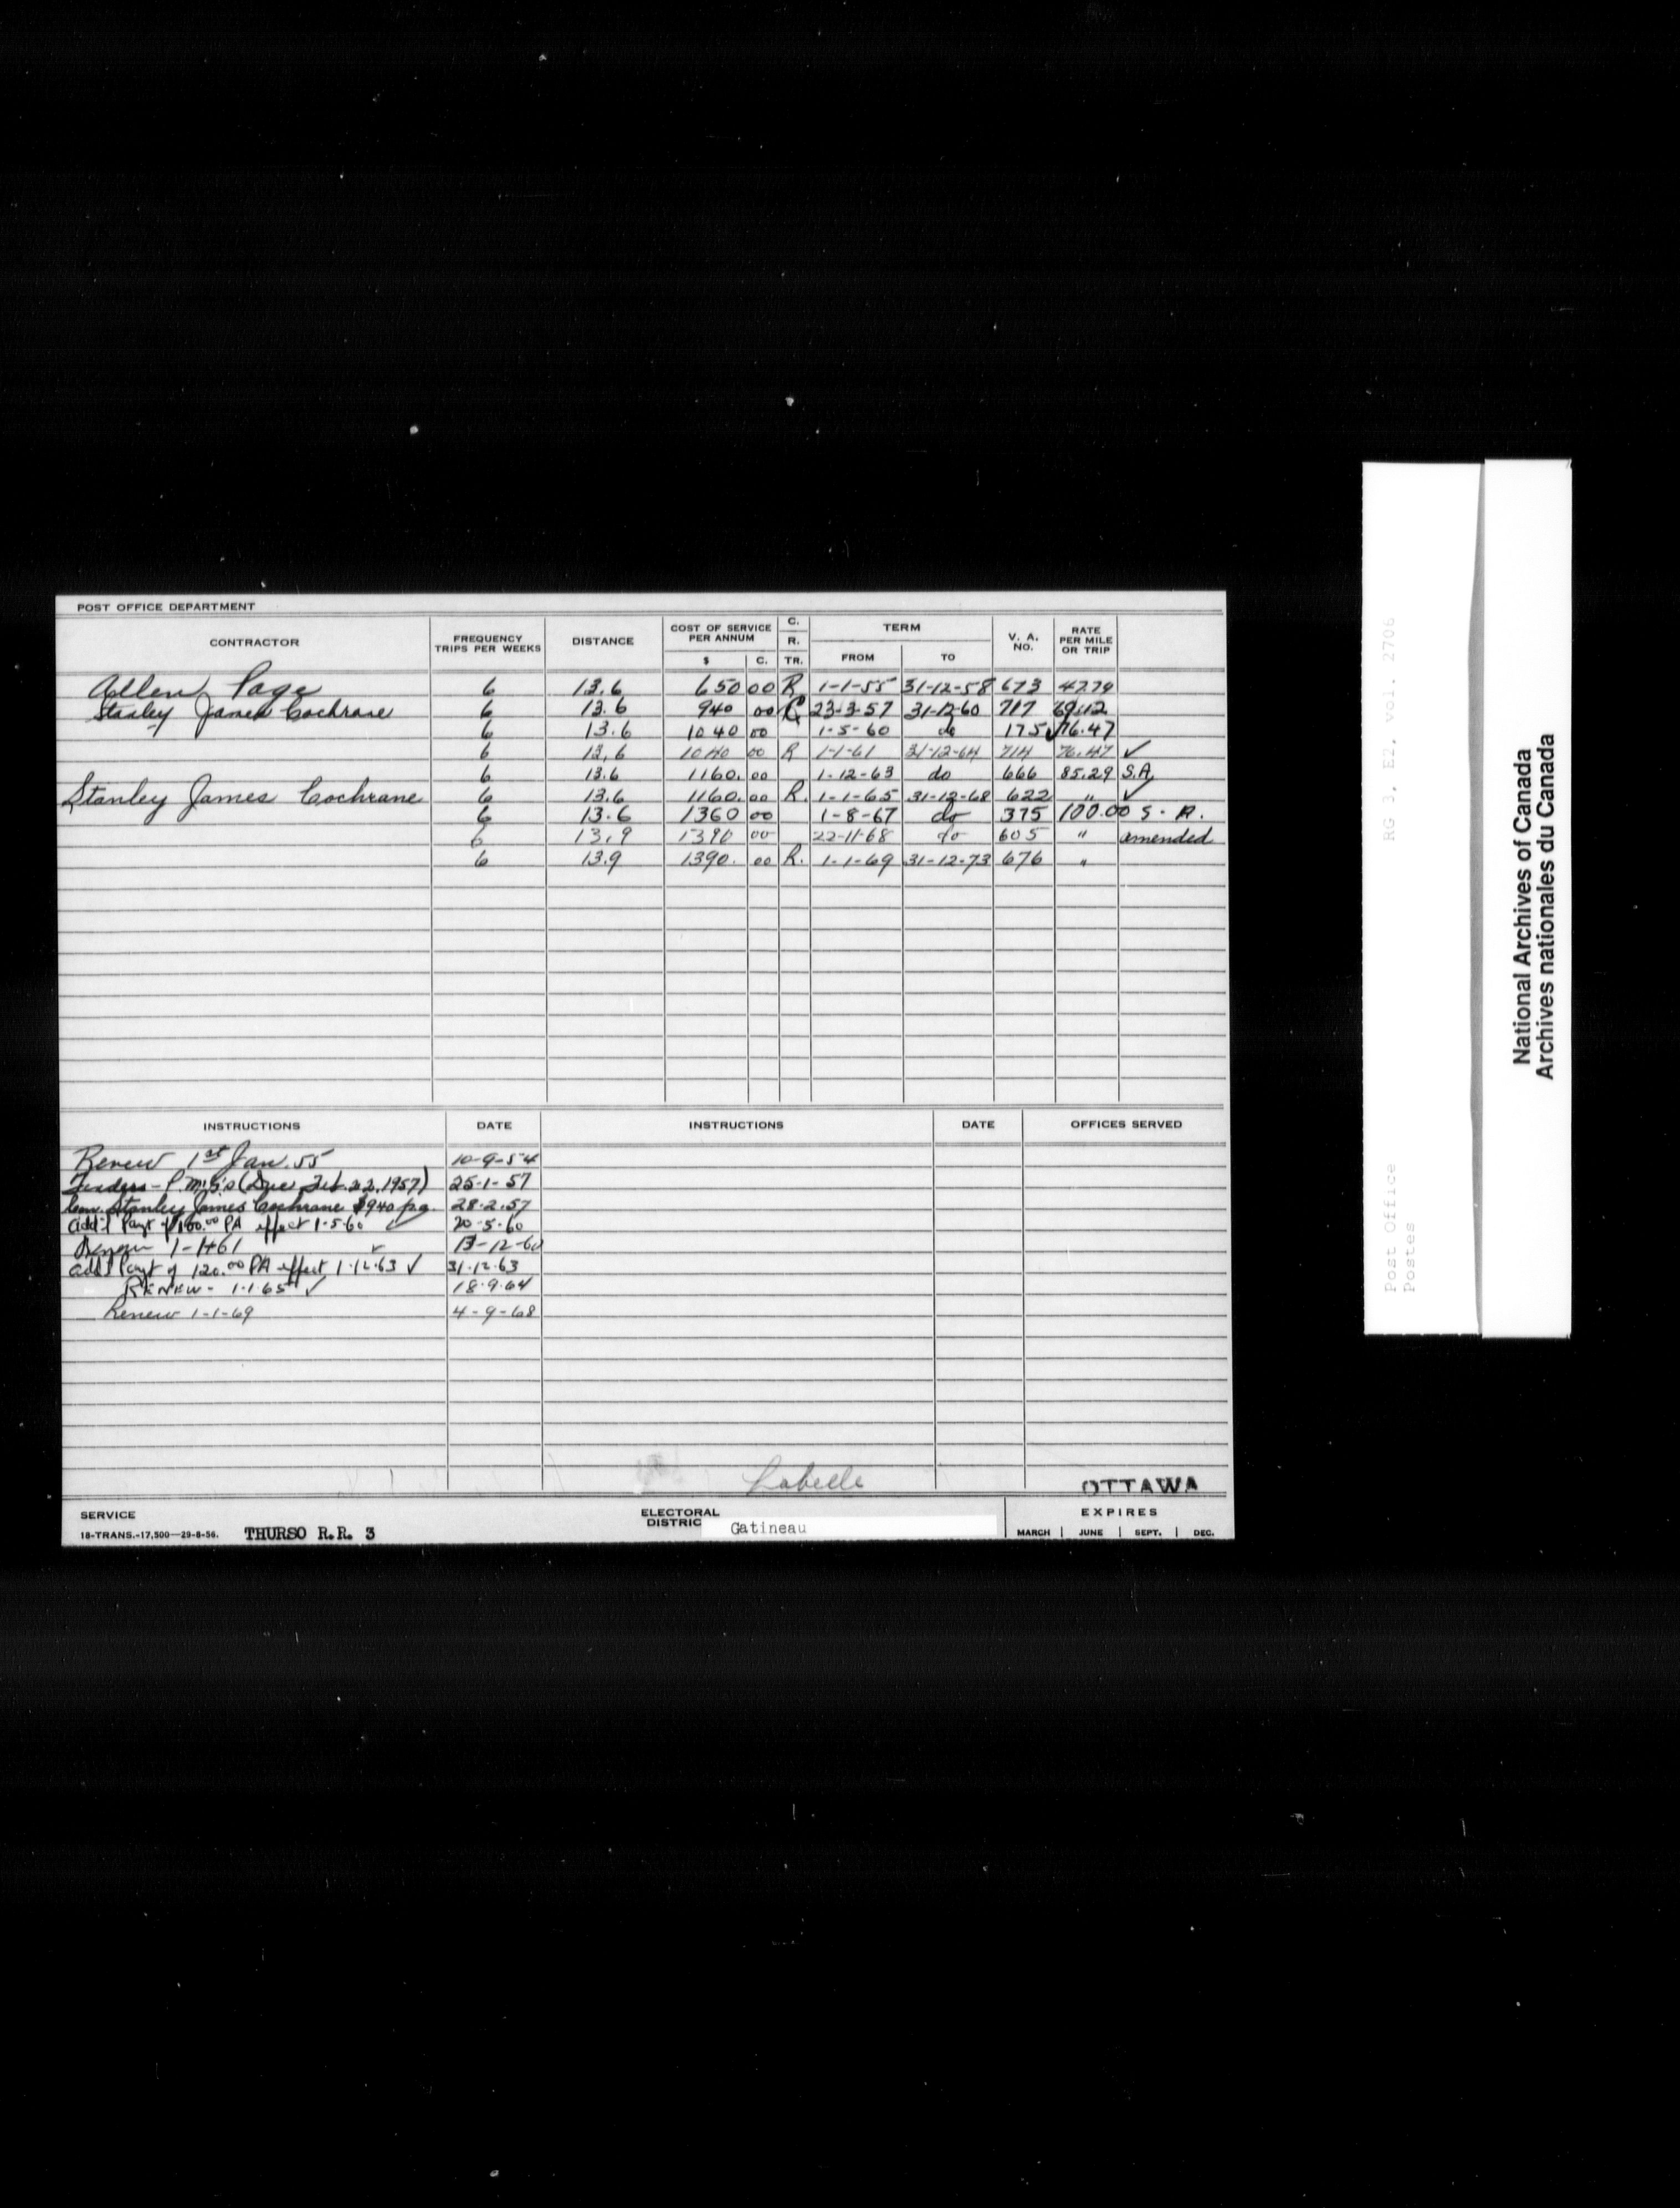 POST OFFICE DEPARTMENT
CONTRACTOR FREQUENCY TRIPS PER WEEKS DISTANCE COST OF SERVICE PER ANNUM $ C. C. R. TR. TERM FROM TO V. A. NO. RATE PER MILE OR TRIP
Allen Page 6 13.6 650 00 R 1-1-55 31-12-58 673 47.79
Stanley James Cochrane 6 13.6 940 00 C 23-3-57 31-12-60 717 69.12
6 13.6 1040 00 1-5-60 do 175 76.47
6 13.6 1040 00 R 1-1-61 31-12-64 714 76.47 ✓
6 13.6 1160. 00 1-12-63 do 666 85.29 S.A.
Stanley James Cochrane 6 13.6 1160. 00 R. 1-1-65 31-12-68 622 " ✓
6 13.6 1360 00 1-8-67 do 375 100.00 S. A.
6 13.9 1390 00 22-11-68 do 605 " amended
6 13.9 1390. 00 R. 1-1-69 31-12-73 676 "
INSTRUCTIONS DATE INSTRUCTIONS DATE OFFICES SERVED
Renew 1st Jan. 55 10-9-54
Tenders - P.M.G's (Due Feb. 22, 1957) 25-1-57
Stanley James Cochrane $940 p.a. 28.2.57
Add'l Payt of 100.00 PA effect 1-5-60 20-5-60
Renew 1-1-61 ✓ 13-12-60
Add'l Payt of 120.00 PA effect 1.12.63 ✓ 31.12.63
RENEW - 1.1.65 ✓ 18.9.64
Renew 1-1-69 4-9-68
Labelle
OTTAWA
SERVICE ELECTORAL DISTRIC Gatineau EXPIRES
18-TRANS.-17,500—29-8-56. THURSO R.R. 3 MARCH | JUNE | SEPT. | DEC.
RG 3, E2, vol. 2706
Post Office
Postes
National Archives of Canada
Archives nationales du Canada